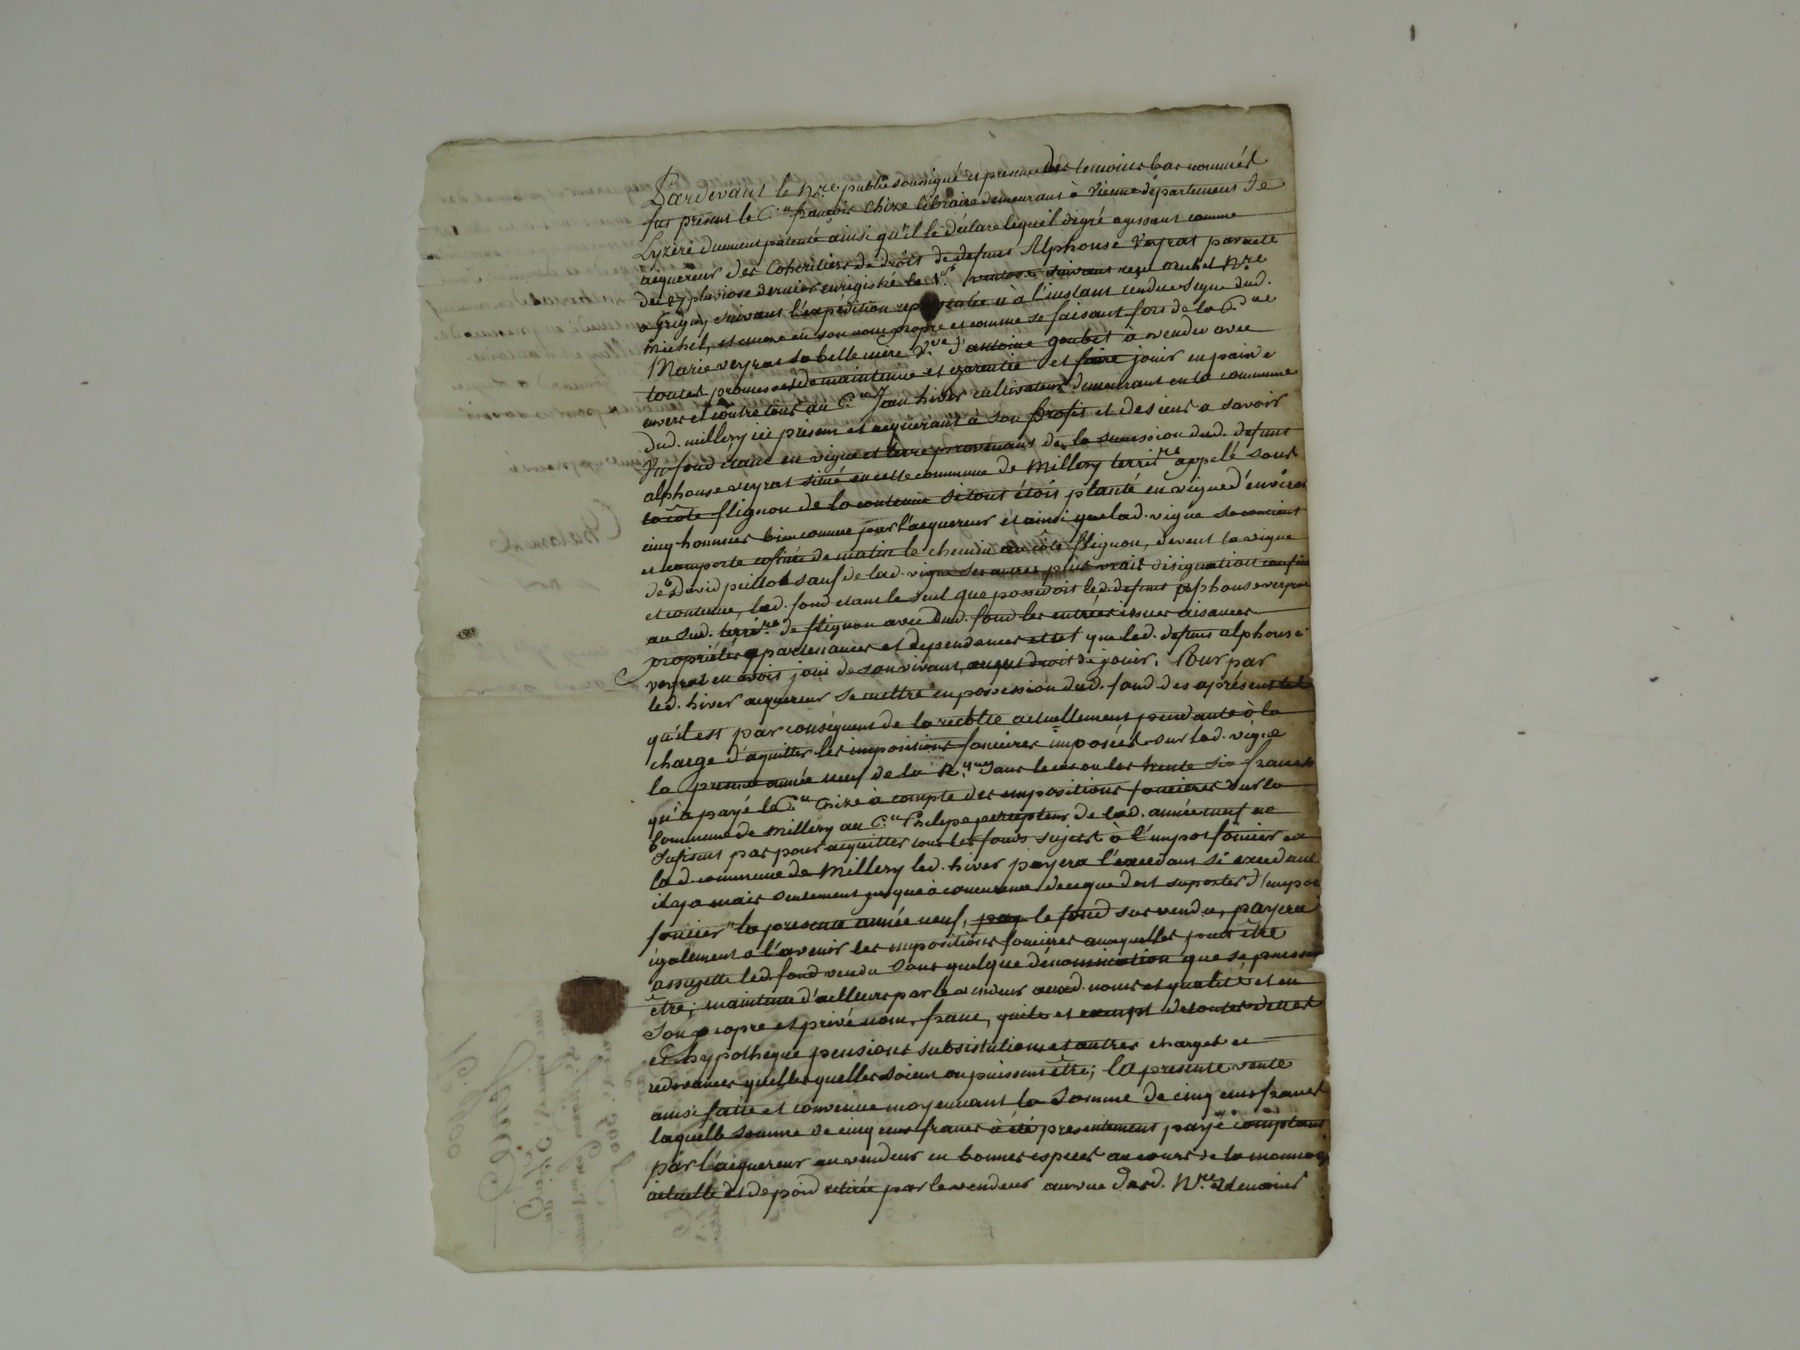 Pardevant le N.re public soussigné et presence des temoins bas nommés
fut présent le C.en françois Chize libraire demeurant à Vienne département de
Lyzère dument patenté ainsi qu'il le déclare lequel dégré agissant comme
acquereur des Cohéritiers de droits de defunt Alphonse Veyrat par acte
de pluviose dernier enregistré le ventose suivant reçu michel N.re
a Grigny suivant l'expédition à l'instant rendue signé dud.
michel, et comme en son nom propre et comme se faisant fors de la C.ne
Marie veyrat sa belle mere V.ve d'antoine goubet à vendu avec
toutes promesses de maintenue et garentie et faire jouir en paix
envers et contre tous au C.en Jean hiver cultivateur demeurant en la commune
dud. millery ici présent et acquerant à son profit et des siens a savoir
Un fond etant en vigne et terre provenant de la succession dud. defunt
alphonse veyrat situé en cette commune de Millery terri.re appelé sous
la côte flignon de la contenue si tout étoit planté en vigne d'environ
cinq hommées bien connue par l'acquereur et ainsi que lad. vigne se contient
et comporte cofinée de matin le chemin au côte flignon, devent la vigne
de David peillot sauf de lad. vigne ses autres plus vrais désignation confins
et contenue, led. fond etant le seul que possedoit led. defunt alphonse veyrat
au sud. terri.re de flignon avec dud. fond les entrées issues aisances
propriétés apartenances et dependances et tel que led. defunt alphonse
veyrat en avoit joui de son vivant, au droit de jouir. Pour par
led. hiver acquereur se mettre en possession dud. fond des apresent tel
qu'il est par conséquent de la récolte actuellement pendante à la
charge d'aquitter les impositions foncières imposées sur lad. vigne
la presente année neuf de la R.que dans le cas ou les trente six francs
qu'à payé le C.en Chize à compte des impositions foncières sur la
Commune de Millery au C.en Philipe percepteur de lad. année neuf ne
sufisent pas pour acquitter tous les fonds sujets à l'impot foncier en
lad. commune de Millery led. hiver payera l'excedant si excedant
il y a mais seulement jusqu'à concurence de ce que doit suporter d'impot
foncier la presente année neuf, le fond sus vendu, payera
également a l'avenir les impositions foncières auxquelles peut être
assujetti led. fond vendu sous quelque dénomination que se puissent
être; maintenu d'ailleurs par le vendeur auxd. noms et qualité et en
son propre et privé nom, franc, quite et exempt de toutes dettes
et hypotheque pensions subsistutions et autres charges et
redevances quelles quelles soient ou puissent être; la presente vente
ainsi faite et convenue moyennant la somme de cinq cens francs
laquelle somme de cinq cens francs à été présentement payé comptant
par l'aquereur au vendeur en bonnes especes au cours de la monnoy
actuelle et de poid retirée par le vendeur au vue dud. N.re et temoins